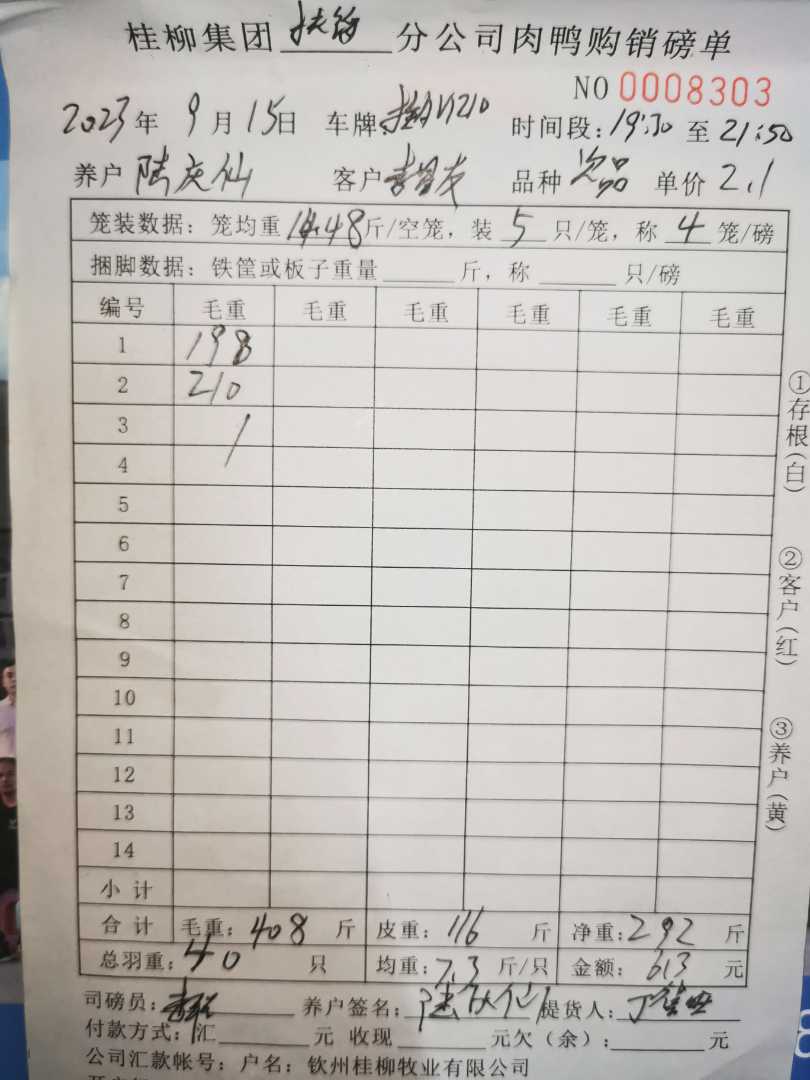 桂柳集团扶绥分公司肉鸭购销磅单
NO 0008303
2023年 9月15日 车牌: 时间段:19:30至21:50
养户 陆庆仙 客户 品种 次品 单价 2.1
笼装数据: 笼均重14.48斤/空笼, 装5只/笼, 称4笼/磅
捆脚数据: 铁筐或板子重量______斤, 称______只/磅
编号 毛重 毛重 毛重 毛重 毛重 毛重
1 198
2 210
3 /
4
5
6
7
8
9
10
11
12
13
14
小计
合计 毛重: 408 斤 皮重: 116 斤 净重: 292 斤
总羽重: 40 只 均重: 7.3 斤/只 金额: 613 元
司磅员: 养户签名: 提货人:
付款方式: 汇______元 收现______元欠(余):______元
公司汇款帐号: 户名: 钦州桂柳牧业有限公司
①存根(白)
②客户(红)
③养户(黄)